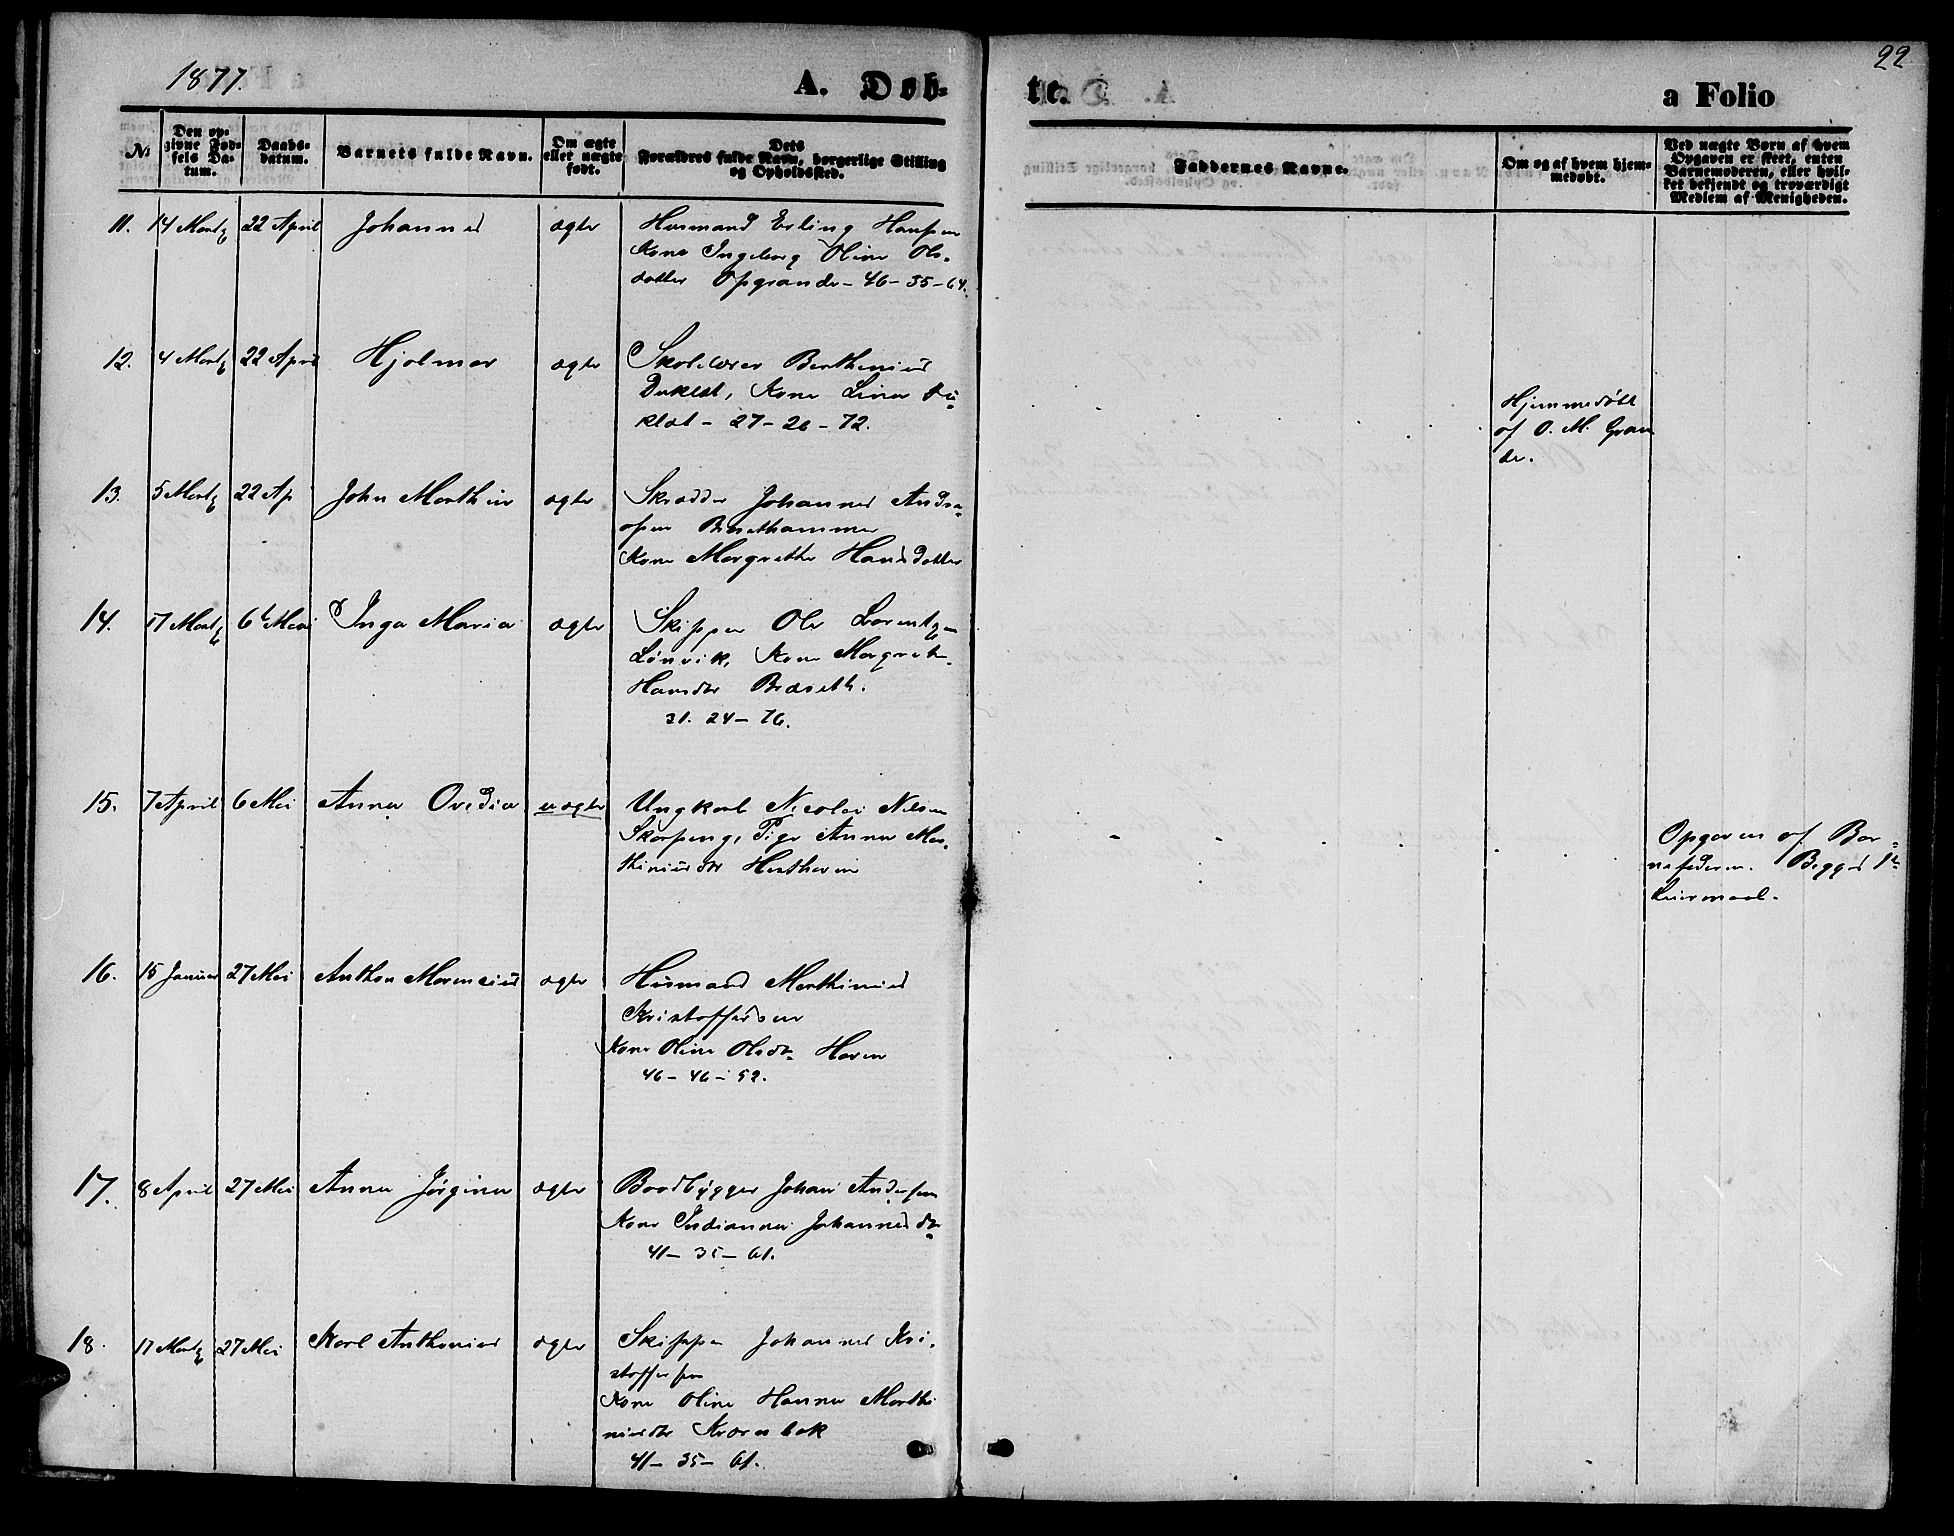 1877.
A. Døb-
te.
a Folio
22
No
Den op-
givne Fød-
sels Da-
tum.
Daabs-
datum.
Barnets fulde Navn.
Om ægte
eller uægte
født.
Dets
Forældres fulde Navn, borgerlige Stilling
og Opholdssted.
Faddernes Navne.
Om og af hvem hjem-
medøbt.
Ved uægte Børn af hvem
Opgaven er skeet, enten
Barnemoderen, eller hvil-
ket bekjendt og troværdigt
Medlem af Menigheden.
11. 14 Martz 22 April Johannes ægte Husmand Erling Hansen
Kone Ingeborg Oline Ols-
datter Opgrande - 46 - 35 - 64.
12. 4 Martz 22 April Hjalmar ægte Skolelærer Berthinius
Duklæt, Kone Lina Du-
klæt - 27 - 26 - 72.
Hjemmedøbt
af O. M. Gran
de.
13. 5 Martz 22 Ap John Marthin ægte Skrædder Johannes Andre-
asen
Kone Margrethe Hansdatter
14. 17 Martz 6te Mai Inga Maria ægte Skipper Ole Lorentzen
Lønvik, Kone Margrete
Hansdtr Bræseth.
31. 24 - 76.
15. 7 April 6 Mai Anna Ovedia uægte Ungkarl Nicolai Nilsen
Skarpeng, Pige Anna Mar-
thiniusdtr
Opgaven af Bar-
nefaderen. Begges 1ste
Leiermaal.
16. 15 Januar 27 Mai Anthon ægte Husmand Marthinius
Kristoffersen
Kone Oline Olsdtr Haven
46 - 46 - 52.
17. 8 April 27 Mai Anna Jørgina ægte Baadbygger Johan Andersen
Kone Indianna Johannesdtr
41 - 35 - 61.
18. 17 Martz 27 Mai Karl Anthonius ægte Skipper Johannes Kri-
stoffersen
Kone Oline Hanna Marthi
niusdtr Kværnbak
41 - 35 - 61.